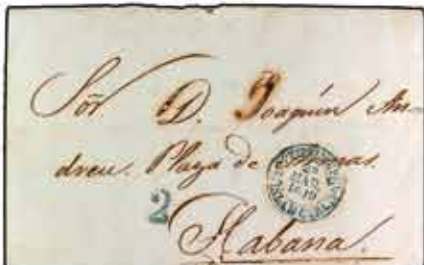 Sōr. D. Joaquín An-
dreu. Plaza de Armas.
2
MAR
Habana.